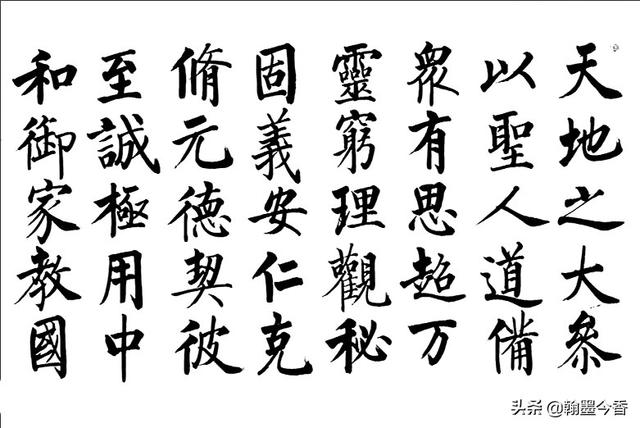 天地之大參
以聖人道備
衆有思超万
靈窮理觀秘
固義安仁克
脩元德契彼
至誠極用中
和御家教國
头条 @翰墨今香